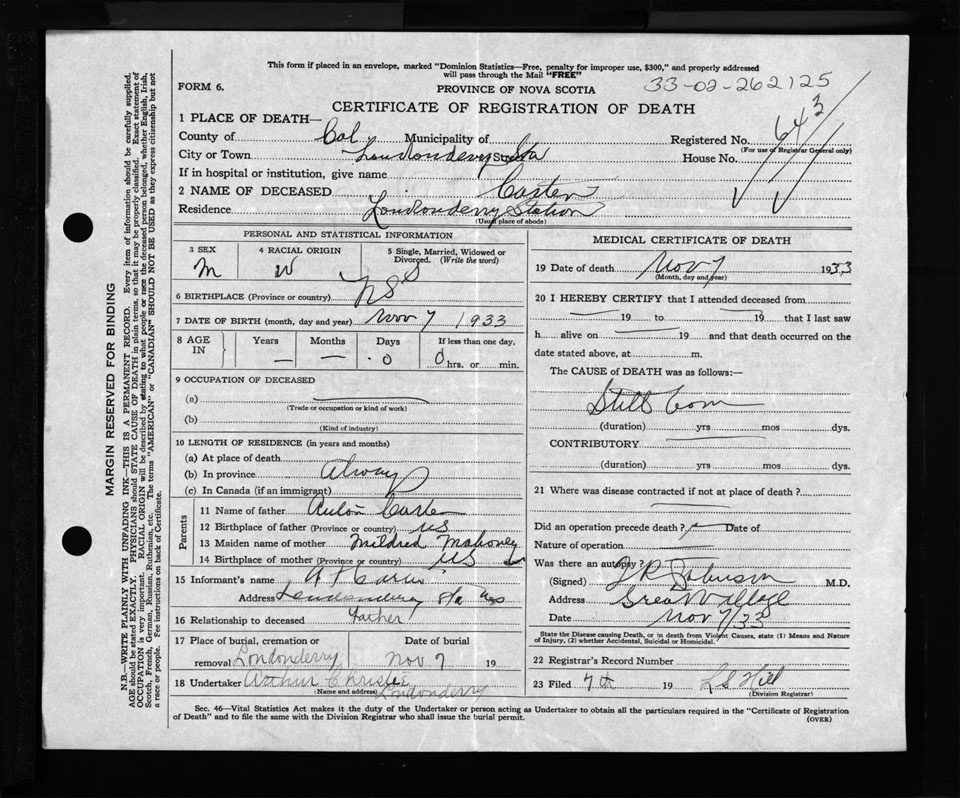 This form if placed in an envelope, marked "Dominion Statistics—Free, penalty for improper use, $300," and properly addressed
will pass through the Mail "FREE"
33-02-262125
FORM 6.
PROVINCE OF NOVA SCOTIA
CERTIFICATE OF REGISTRATION OF DEATH
1 PLACE OF DEATH—
County of Col Municipality of Registered No. 643
(For use of Registrar General only)
City or Town Londonderry Sta Street House No.
If in hospital or institution, give name
2 NAME OF DECEASED Carter
Residence Londonderry Station
(Usual place of abode)
PERSONAL AND STATISTICAL INFORMATION
3 SEX 4 RACIAL ORIGIN 5 Single, Married, Widowed or
Divorced. (Write the word)
M W S
6 BIRTHPLACE (Province or country) NS
7 DATE OF BIRTH (month, day and year) Nov 7 1933
8 AGE IN Years Months Days If less than one day,
— — 0 0 hrs. or min.
9 OCCUPATION OF DECEASED
(a)
(Trade or occupation or kind of work)
(b)
(Kind of industry)
10 LENGTH OF RESIDENCE (in years and months)
(a) At place of death
(b) In province Always
(c) In Canada (if an immigrant)
Parents
11 Name of father Carter
12 Birthplace of father (Province or country) NS
13 Maiden name of mother Mildred Mahoney
14 Birthplace of mother (Province or country) NS
15 Informant's name Carter
Address Londonderry Sta NS
16 Relationship to deceased Father
17 Place of burial, cremation or Date of burial
removal Londonderry Nov 7 19
18 Undertaker Arthur Christie
(Name and address) Londonderry
MEDICAL CERTIFICATE OF DEATH
19 Date of death Nov 7 1933
(Month, day and year)
20 I HEREBY CERTIFY that I attended deceased from
— 19 to — 19 that I last saw
h alive on — 19 and that death occurred on the
date stated above, at m.
The CAUSE of DEATH was as follows:—
Still born
(duration) yrs mos dys.
CONTRIBUTORY
(duration) yrs mos dys.
21 Where was disease contracted if not at place of death?
Did an operation precede death? Date of
Nature of operation
Was there an autopsy?
(Signed) Johnson M.D.
Address Great Village
Date Nov 7/33
State the Disease causing Death, or in death from Violent Causes, state (1) Means and Nature
of Injury, (2) whether Accidental, Suicidal or Homicidal.
22 Registrar's Record Number
23 Filed 7th 19 Hill
(Division Registrar)
Sec. 46—Vital Statistics Act makes it the duty of the Undertaker or person acting as Undertaker to obtain all the particulars required in the "Certificate of Registration
of Death" and to file the same with the Division Registrar who shall issue the burial permit.
(OVER)
MARGIN RESERVED FOR BINDING
N.B.—WRITE PLAINLY WITH UNFADING INK—THIS IS A PERMANENT RECORD. Every item of information should be carefully supplied.
AGE should be stated EXACTLY. PHYSICIANS should STATE CAUSE OF DEATH in plain terms, so that it may be properly classified. Exact statement of
OCCUPATION is very important. RACIAL ORIGIN will be described by stating to what people or race the deceased person belonged, whether English, Irish,
Scotch, French, German, Russian, Ruthenian, etc. The terms "AMERICAN" or "CANADIAN" SHOULD NOT BE USED as they express citizenship but not
a race or people. See instructions on back of Certificate.